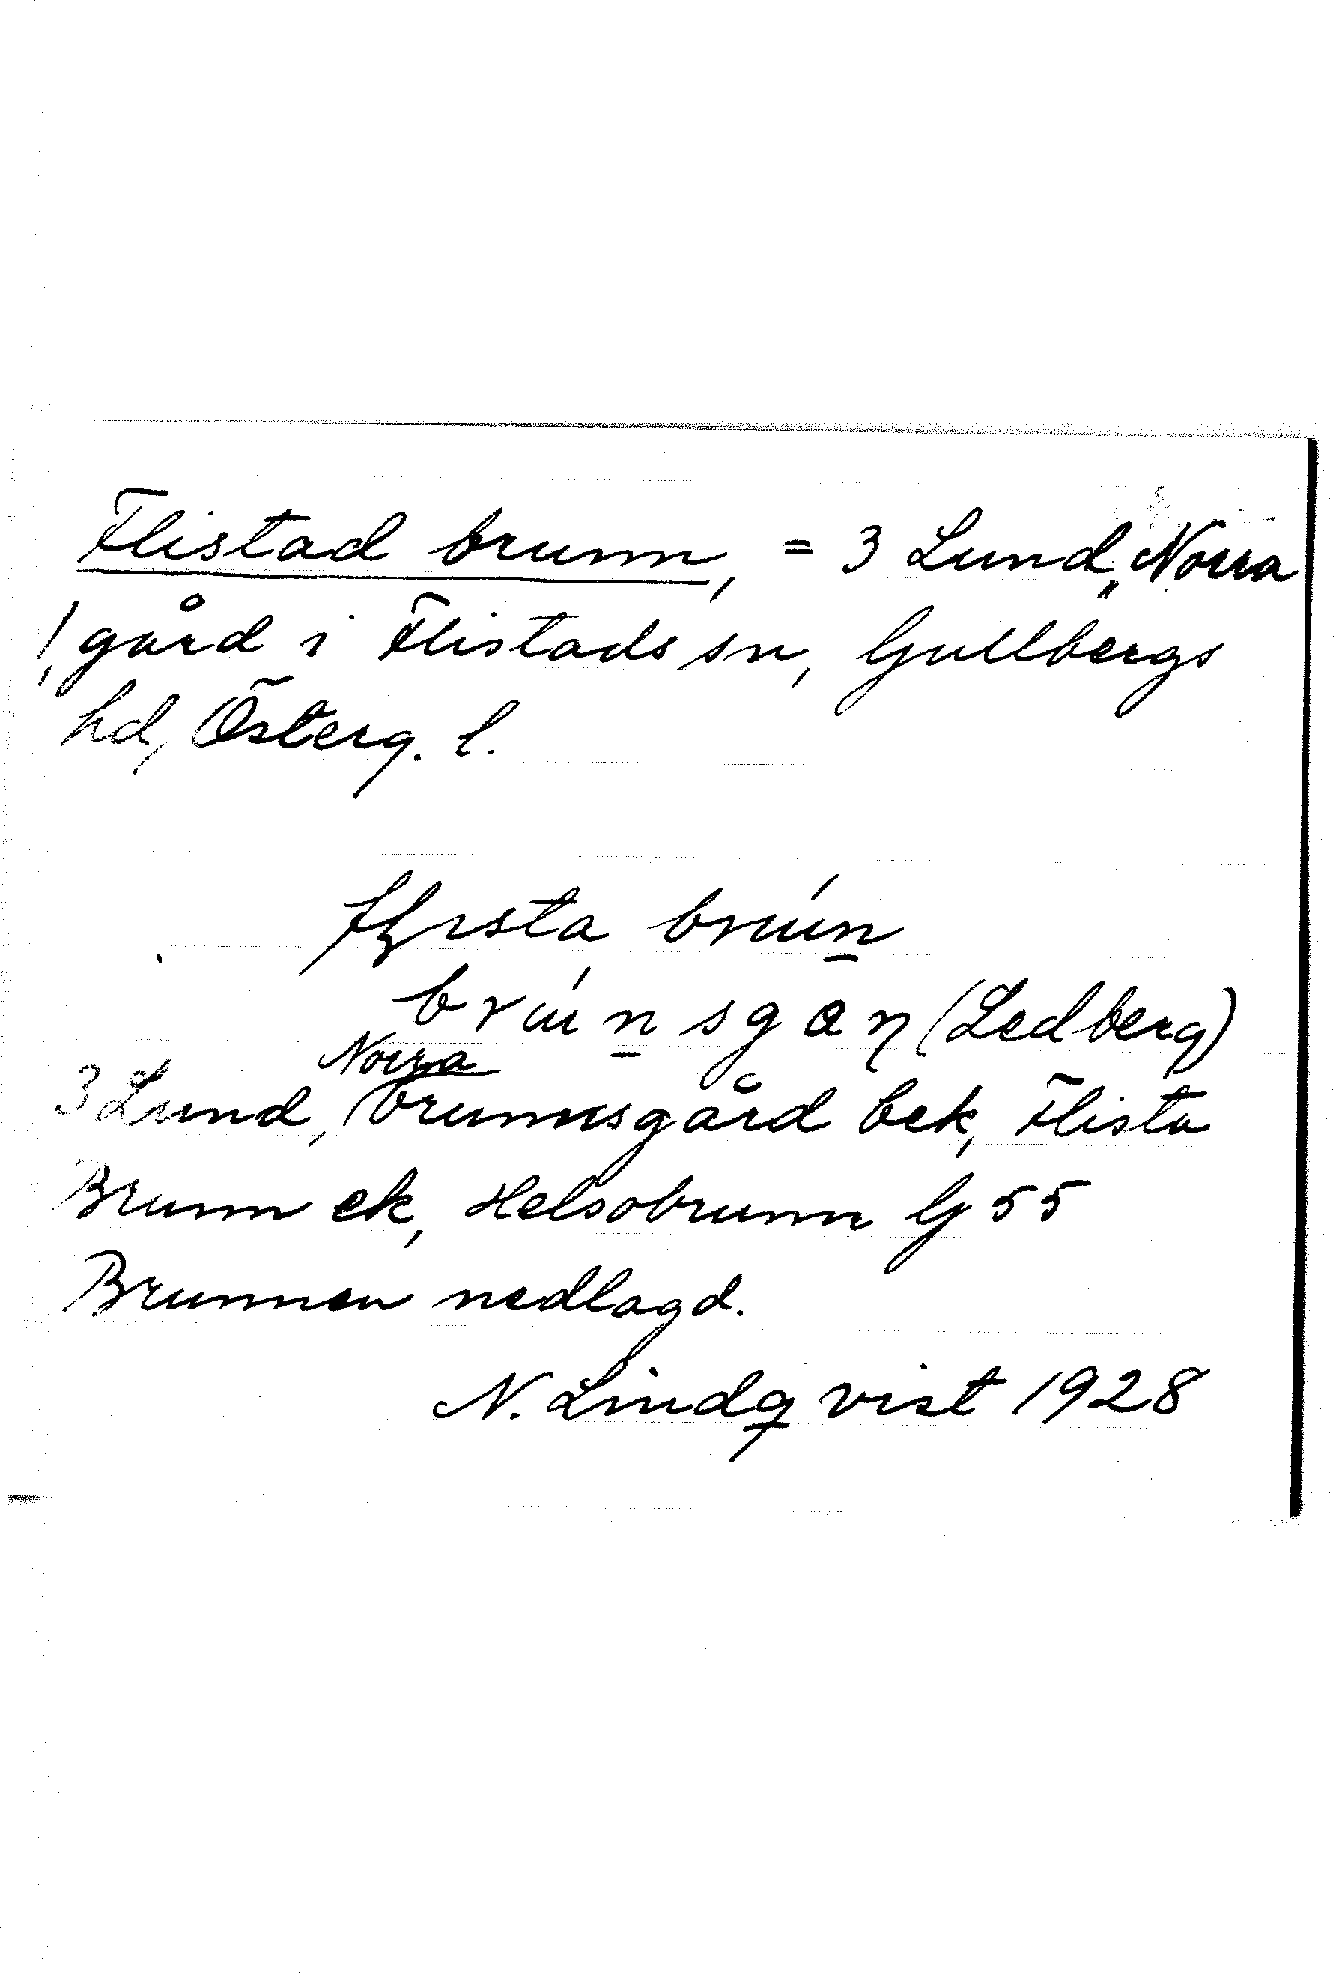 Flistad brunn, = 3 Lund, Norra
gård i Flistads sn, Gullbergs
hd, Österg. l.
brún
brúnsgaɳ (Ledberg)
Norra
3 Lund, brunnsgård bek, Flista
Brunn ek, Helsobrunn G 55
Brunnen nedlagd.
N. Lindqvist 1928